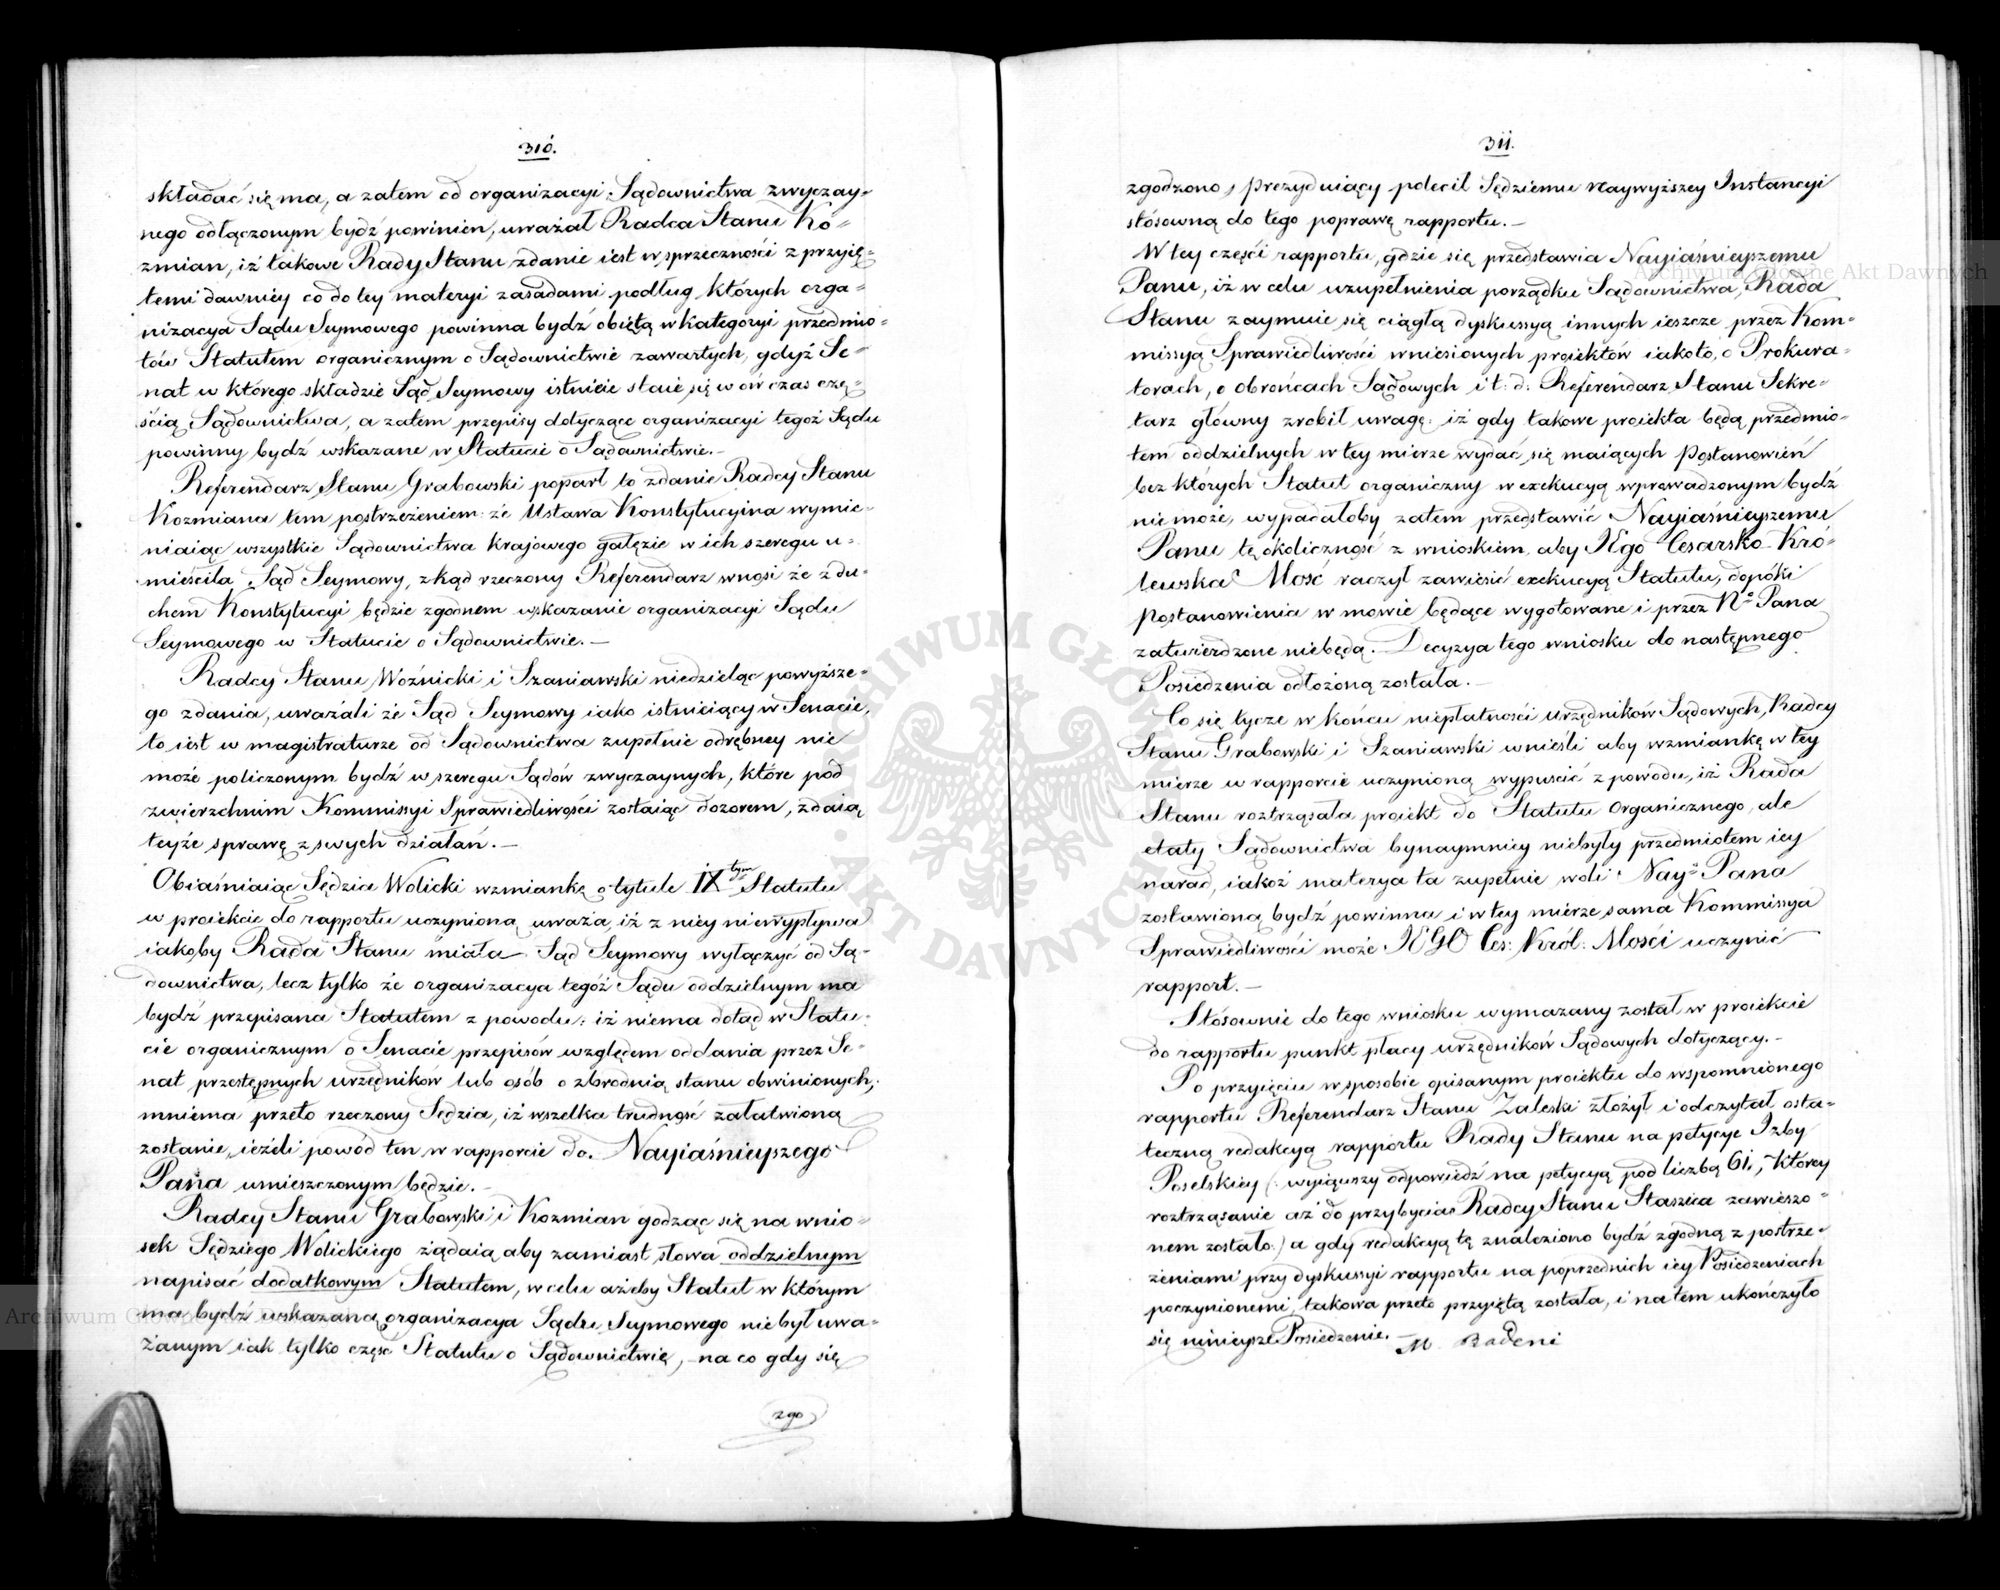 310.
składać się ma, a zatem od organizacyi Sądownictwa zwyczay=
nego odłączonym bydź powinien, uważał Radca Stanu Ko=
zmian, iż takowe Rady Stanu zdanie iest w sprzeczności z przyię=
temi dawniey co do tey materyi zasadami podług których orga=
nizacya Sądu Seymowego powinna bydź obiętą w kategoryi przedmio=
tów Statutem organicznym o Sądownictwie zawartych, gdyż Se=
nat w którego składzie Sąd Seymowy istnieie staie się w ów czas czę=
ścią Sądownictwa, a zatem przepisy dotyczące organizacyi tegoż Sądu
powinny bydź wskazane w Statucie o Sądownictwie.—
Referendarz Stanu Grabowski poparł to zdanie Radcy Stanu
Kozmiana tem postrzeżeniem: że Ustawa Konstytucyina wymie=
niaiąc wszystkie Sądownictwa krajowego gałęzie w ich szeregu u=
mieściła Sąd Seymowy, zkąd rzeczony Referendarz wnosi że z du=
chem Konstytucyi będzie zgodnem wskazanie organizacyi Sądu
Seymowego w Statucie o Sądownictwie.—
Radcy Stanu Woźnicki i Szaniawski niedzieląc powyższe=
go zdania, uważali że Sąd Seymowy iako istnieiący w Senacie,
to iest w magistraturze od Sądownictwa zupełnie odrębney nie
może policzonym bydź w szeregu Sądów zwyczaynych, które pod
zwierzchnim Kommissyi Sprawiedliwości zostaiąc dozorem, zdaią
teyże sprawę z swych działań.—
Obiaśniaiąc Sędzia Wolicki wzmiankę o tytule IX tym Statutu
w proiekcie do rapportu uczynioną uważa, iż z niey niewypływa
iakoby Rada Stanu miała Sąd Seymowy wyłączyć od Są=
downictwa, lecz tylko że organizacya tegóż Sądu oddzielnym ma
bydź przepisana Statutem z powodu: iż niema dotąd w Statu=
cie organicznym o Senacie przepisów względem oddania przez Se=
nat przestępnych urzędników lub osób o zbrodnią stanu obwinionych,
mniema przeto rzeczony Sędzia, iż wszelka trudność załatwioną
zostanie, ieżeli powód ten w rapporcie do Nayiaśnieyszego
Pana umieszczonym będzie.—
Radcy Stanu Grabowski i Kozmian godząc się na wnio=
sek Sędziego Wolickiego żądaią aby zamiast słowa oddzielnym
napisać dodatkowym Statutem, w celu ażeby Statut w którym
ma bydź wskazaną organizacya Sądu Seymowego nie był uwa=
żanym iak tylko część Statutu o Sądownictwie, — na co gdy się
zgo
311.
zgodzono, prezyduiący polecił Sędziemu Naywyższey Instancyi
stósowną do tego poprawę rapportu.—
W tey części rapportu, gdzie się przedstawia Nayiaśnieyszemu
Panu, iż w celu uzupełnienia porządku Sądownictwa, Rada
Stanu zaymuie się ciągłą dyskussyą innych ieszcze przez Kom=
missyą Sprawiedliwości wniesionych proiektów iakoto, o Prokura=
torach, o obrońcach Sądowych i t: d: Referendarz Stanu Sekre=
tarz główny zrobił uwagę: iż gdy takowe proiekta będą przedmio=
tem oddzielnych w tey mierze wydać się maiących Postanowień
bez których Statut organiczny w exekucyą wprowadzonym bydź
nie może, wypadałoby zatem przedstawić Nayiaśnieyszemu
Panu tę okoliczność z wnioskiem, aby JEgo Cesarsko Kró=
lewska Mość raczył zawiesić exekucyą Statutu, dopóki
Postanowienia w mowie będące wygotowane i przez N.º Pana
zatwierdzone niebędą. Decyzya tego wniosku do następnego
Posiedzenia odłożoną została.—
Co się tycze w końcu niepłatności urzędników Sądowych, Radcy
Stanu Grabowski i Szaniawski wnieśli aby wzmiankę w tey
mierze w rapporcie uczynioną wypuścić z powodu, iż Rada
Stanu roztrząsała proiekt do Statutu Organicznego, ale
etaty Sądownictwa bynaymniey niebyły przedmiotem iey
narad, iakoż materya ta zupełnie woli Nay.º Pana
zostawioną bydź powinna i w tey mierze sama Kommissya
Sprawiedliwości może JEGO Ces: Król: Mości uczynić
rapport.—
Stósownie do tego wniosku wymazany został w proiekcie
do rapportu punkt płacy urzędników Sądowych dotyczący.—
Po przyięciu w sposobie opisanym proiektu do wspomnionego
rapportu Referendarz Stanu Zaleski złożył i odczytał osta=
teczną redakcyą rapportu Rady Stanu na petycye Izby
Poselskiey (: wyiąwszy odpowiedź na petycyą pod liczbą 61, którey
roztrząsanie aż do przybycia Radcy Stanu Staszica zawieszo=
nem zostało:) a gdy redakcyą tę znaleziono bydź zgodną z postrze=
żeniami przy dyskussyi rapportu na poprzednich iey Posiedzeniach
poczynionemi, takowa przeto przyiętą została, i na tem ukończyło
się ninieysze Posiedzenie.— M. Badeni
Archiwum Główne Akt Dawnych
ARCHIWUM GŁÓWNE AKT DAWNYCH